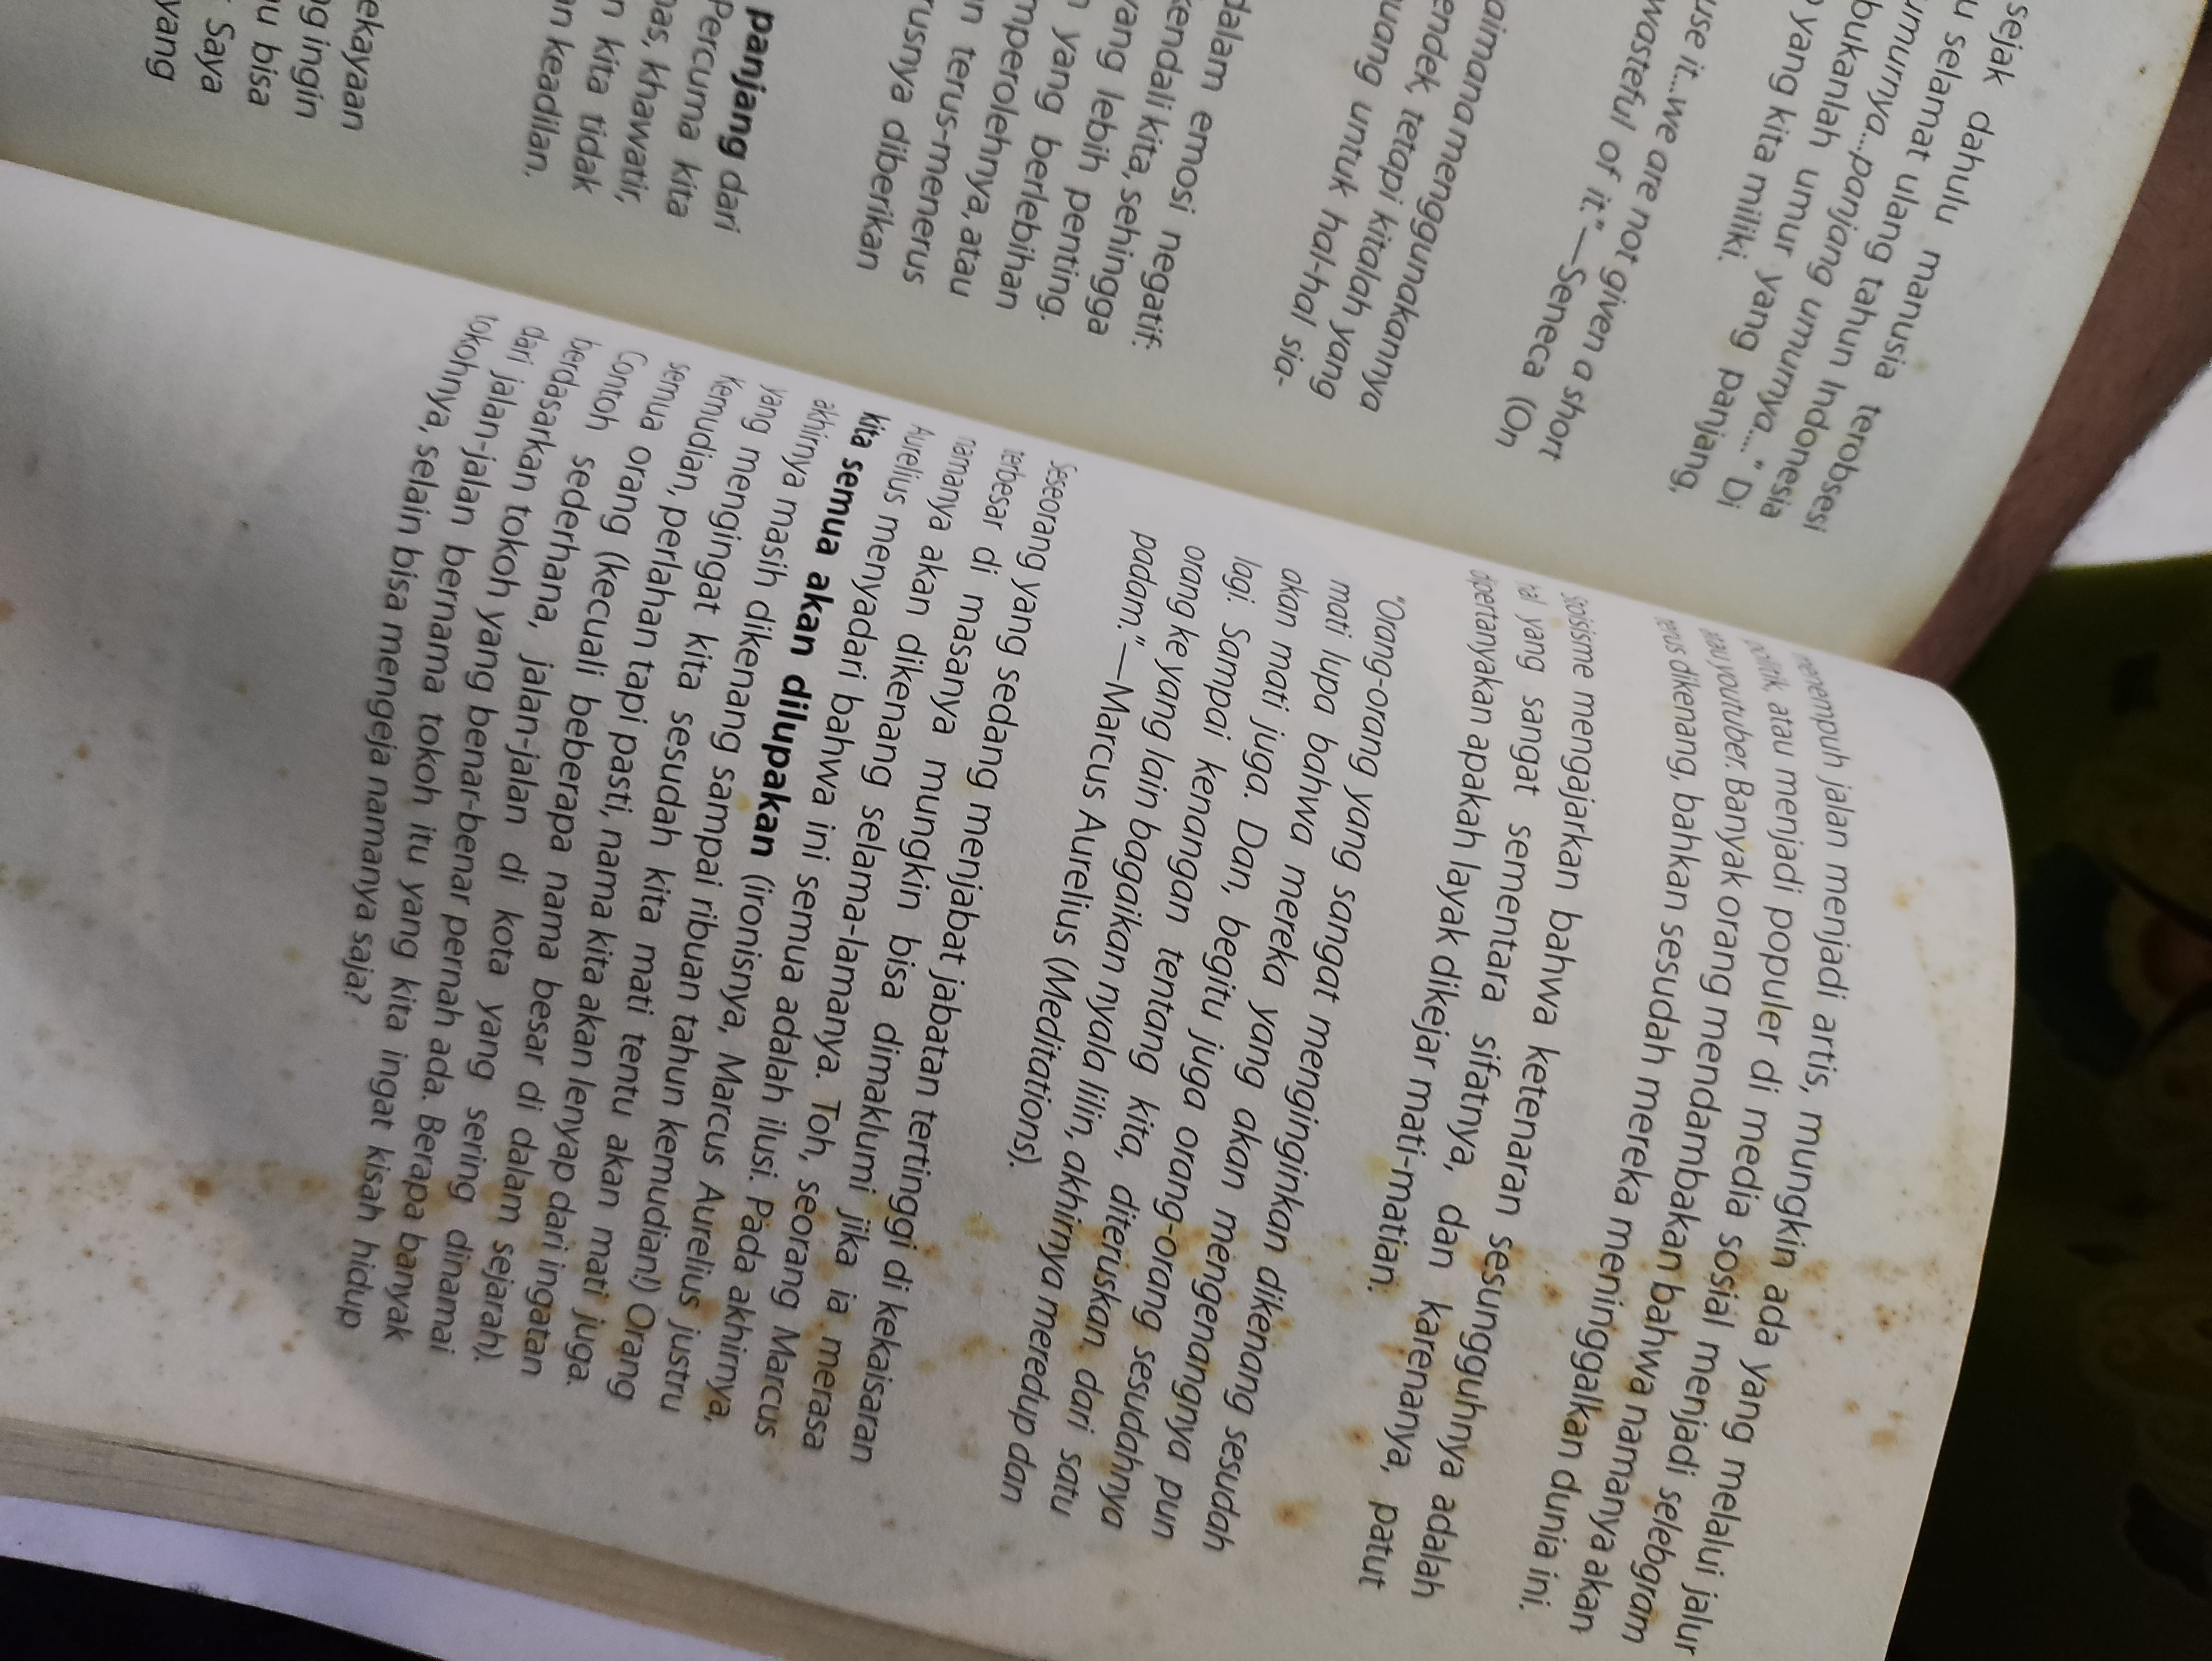 sejak dahulu manusia terobsesi
u selamat ulang tahun Indonesia
umurnya...panjang umurnya...." Di
bukanlah umur yang panjang,
yang kita miliki.
use it...we are not given a short
wasteful of it."—Seneca (On
aimana menggunakannya
endek, tetapi kitalah yang
uang untuk hal-hal sia-
dalam emosi negatif.
kendali kita, sehingga
yang lebih penting.
yang berlebihan
mperolehnya, atau
n terus-menerus
rusnya diberikan
panjang dari
Percuma kita
nas, khawatir,
n kita tidak
an keadilan.
ekayaan
g ingin
u bisa
Saya
yang
menempuh jalan menjadi artis, mungkin ada yang melalui jalur
politik, atau menjadi populer di media sosial menjadi selebgram
atau youtuber. Banyak orang mendambakan bahwa namanya akan
terus dikenang, bahkan sesudah mereka meninggalkan dunia ini.
Stoisisme mengajarkan bahwa ketenaran sesungguhnya adalah
hal yang sangat sementara sifatnya, dan karenanya, patut
dipertanyakan apakah layak dikejar mati-matian.
"Orang-orang yang sangat menginginkan dikenang sesudah
mati lupa bahwa mereka yang akan mengenangnya pun
akan mati juga. Dan, begitu juga orang-orang sesudahnya
lagi. Sampai kenangan tentang kita, diteruskan dari satu
orang ke yang lain bagaikan nyala lilin, akhirnya meredup dan
padam."—Marcus Aurelius (Meditations).
Seseorang yang sedang menjabat jabatan tertinggi di kekaisaran
terbesar di masanya mungkin bisa dimaklumi jika ia merasa
namanya akan dikenang selama-lamanya. Toh, seorang Marcus
Aurelius menyadari bahwa ini semua adalah ilusi. Pada akhirnya,
kita semua akan dilupakan (ironisnya, Marcus Aurelius justru
akhirnya masih dikenang sampai ribuan tahun kemudian!) Orang
yang mengingat kita sesudah kita mati tentu akan mati juga.
Kemudian, perlahan tapi pasti, nama kita akan lenyap dari ingatan
semua orang (kecuali beberapa nama besar di dalam sejarah).
Contoh sederhana, jalan-jalan di kota yang sering dinamai
berdasarkan tokoh yang benar-benar pernah ada. Berapa banyak
dari jalan-jalan bernama tokoh itu yang kita ingat kisah hidup
tokohnya, selain bisa mengeja namanya saja?